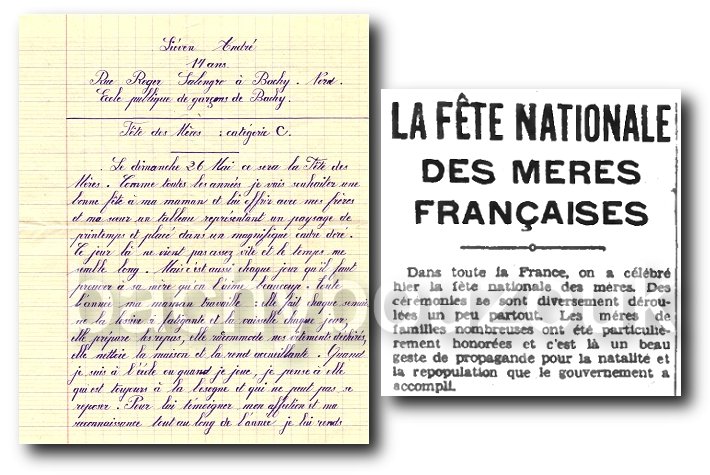 Liéven André
14 ans.
Rue Roger Salengro à Bachy. Nord.
Ecole publique de garçons de Bachy.
Fête des Mères : catégorie C.
Le dimanche 26 Mai ce sera la Fête des
Mères. Comme toutes les années je vais souhaiter une
bonne fête à ma maman et lui offrir avec mes frères
et ma sœur un tableau représentant un paysage de
printemps et placé dans un magnifique cadre doré.
Ce jour là ne vient pas assez vite et le temps me
semble long. Mais c'est aussi chaque jour qu'il faut
prouver à sa mère qu'on l'aime beaucoup : toute
l'année ma maman travaille : elle fait chaque semai-
ne la lessive si fatigante et la vaisselle chaque jour ;
elle prépare les repas, elle raccommode nos vêtements déchirés,
elle nettoie la maison et la rend accueillante. Quand
je suis à l'école ou quand je joue, je pense à elle
qui est toujours à la besogne et qui ne peut pas se
reposer. Pour lui témoigner mon affection et ma
reconnaissance tout au long de l'année je lui rends
LA FÊTE NATIONALE
DES MERES
FRANÇAISES
Dans toute la France, on a célébré
hier la fête nationale des mères. Des
cérémonies se sont diversement dérou-
lées un peu partout. Les mères de
familles nombreuses ont été particuliè-
rement honorées et c'est là un beau
geste de propagande pour la natalité et
la repopulation que le gouvernement a
accompli.